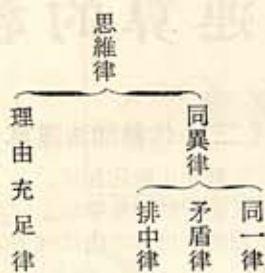 思維律
同異律
同一律
矛盾律
排中律
理由充足律